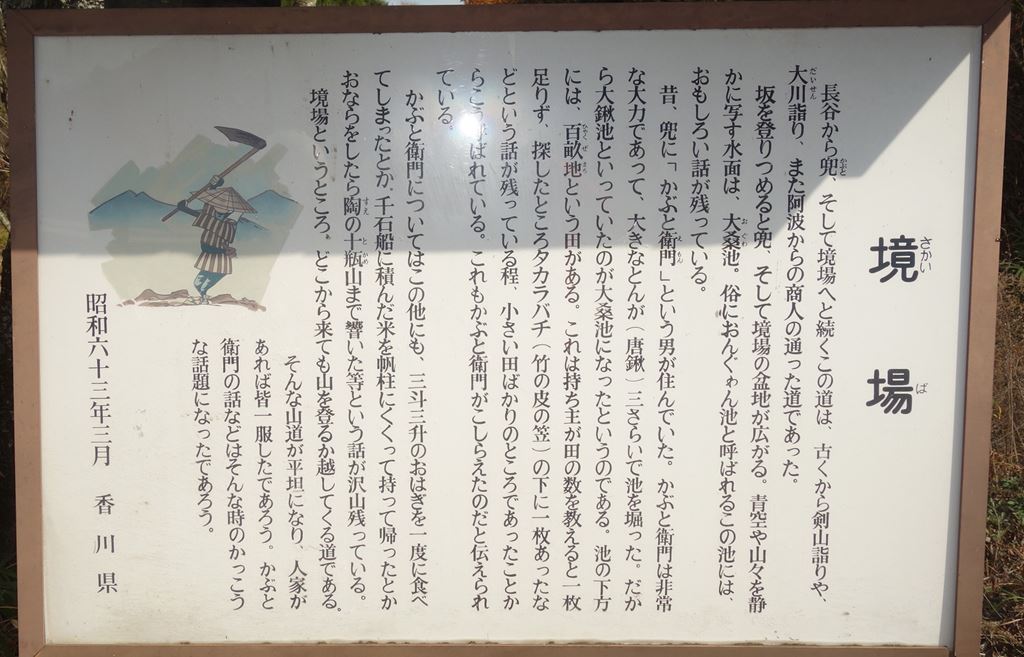 境場
長谷から兜、そして境場へと続くこの道は、古くから剣山詣りや、
大川詣り、また阿波からの商人の通った道であった。
坂を登りつめると兜、そして境場の盆地が広がる。青空や山々を静
かに写す水面は、大桑池。俗におんぐゎん池と呼ばれるこの池には、
おもしろい話が残っている。
昔、兜に「かぶと衛門」という男が住んでいた。かぶと衛門は非常
な大力であって、大きなとんが(唐鍬)三さらいで池を堀った。だか
ら大鍬池といっていたのが大桑池になったというのである。池の下方
には、百畝地という田がある。これは持ち主が田の数を教えると一枚
足りず、探したところタカラバチ(竹の皮の笠)の下に一枚あったな
どという話が残っている程、小さい田ばかりのところであったことか
らこう呼ばれている。これもかぶと衛門がこしらえたのだと伝えられ
ている。
かぶと衛門についてはこの他にも、三斗三升のおはぎを一度に食べ
てしまったとか、千石船に積んだ米を帆柱にくくって持って帰ったとか
おならをしたら陶の十瓶山まで響いた等という話が沢山残っている。
境場というところ、どこから来ても山を登るか越してくる道である。
そんな山道が平坦になり、人家が
あれば皆一服したであろう。かぶと
衛門の話などはそんな時のかっこう
な話題になったであろう。
昭和六十三年三月 香川県